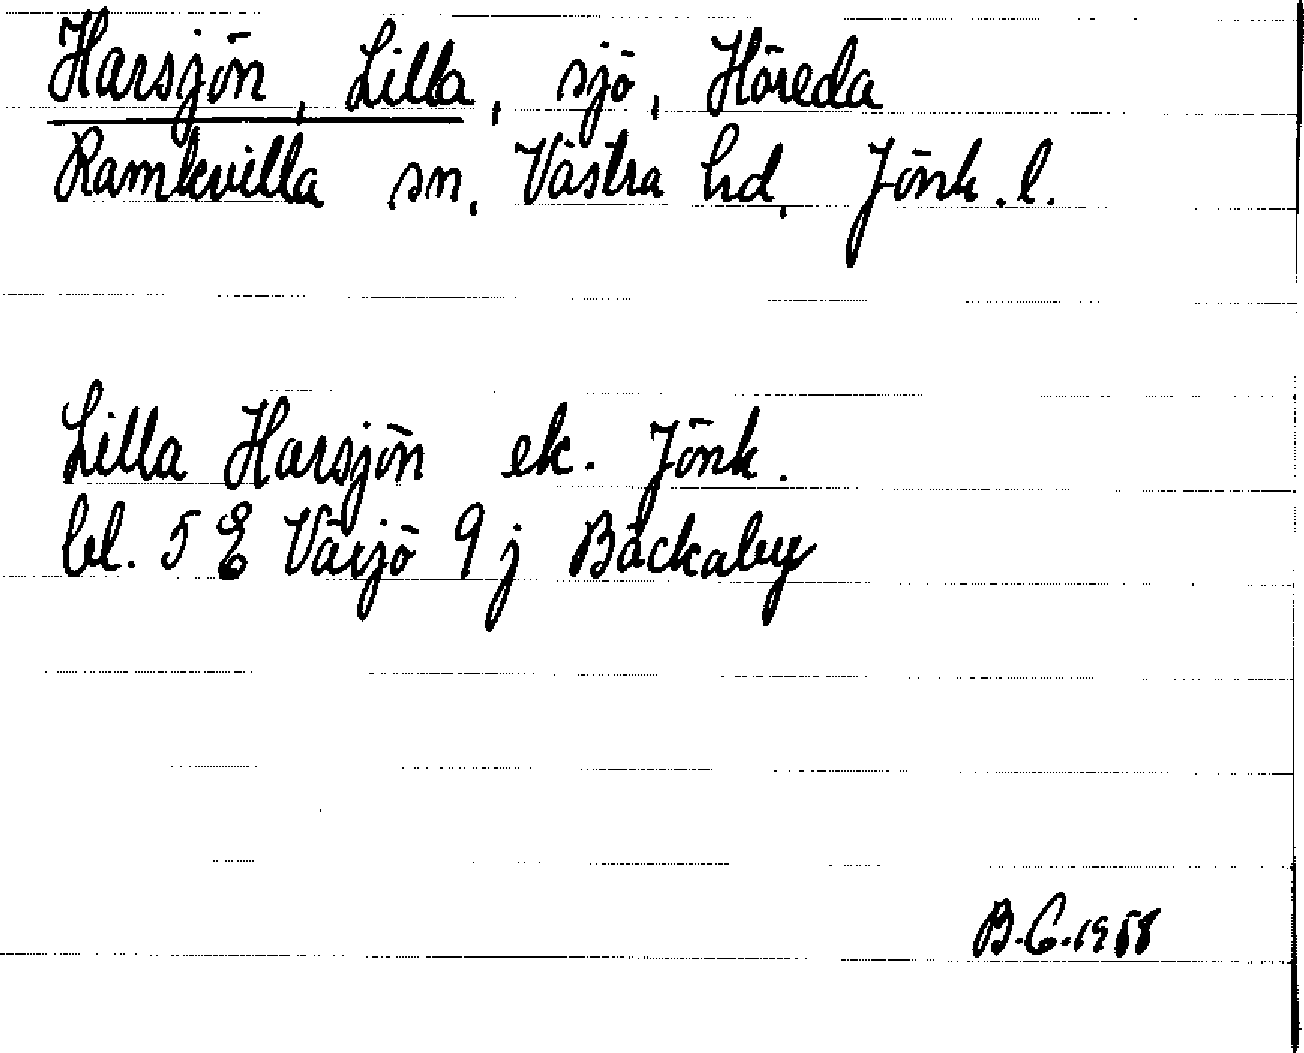 Harsjön, Lilla, sjö, Höreda
Ramkvilla sn, Västra hd, Jönk. l.
Lilla Harsjön ek. Jönk.
bl. 5 E Växjö 9 j Bäckaby
B.C. 1958